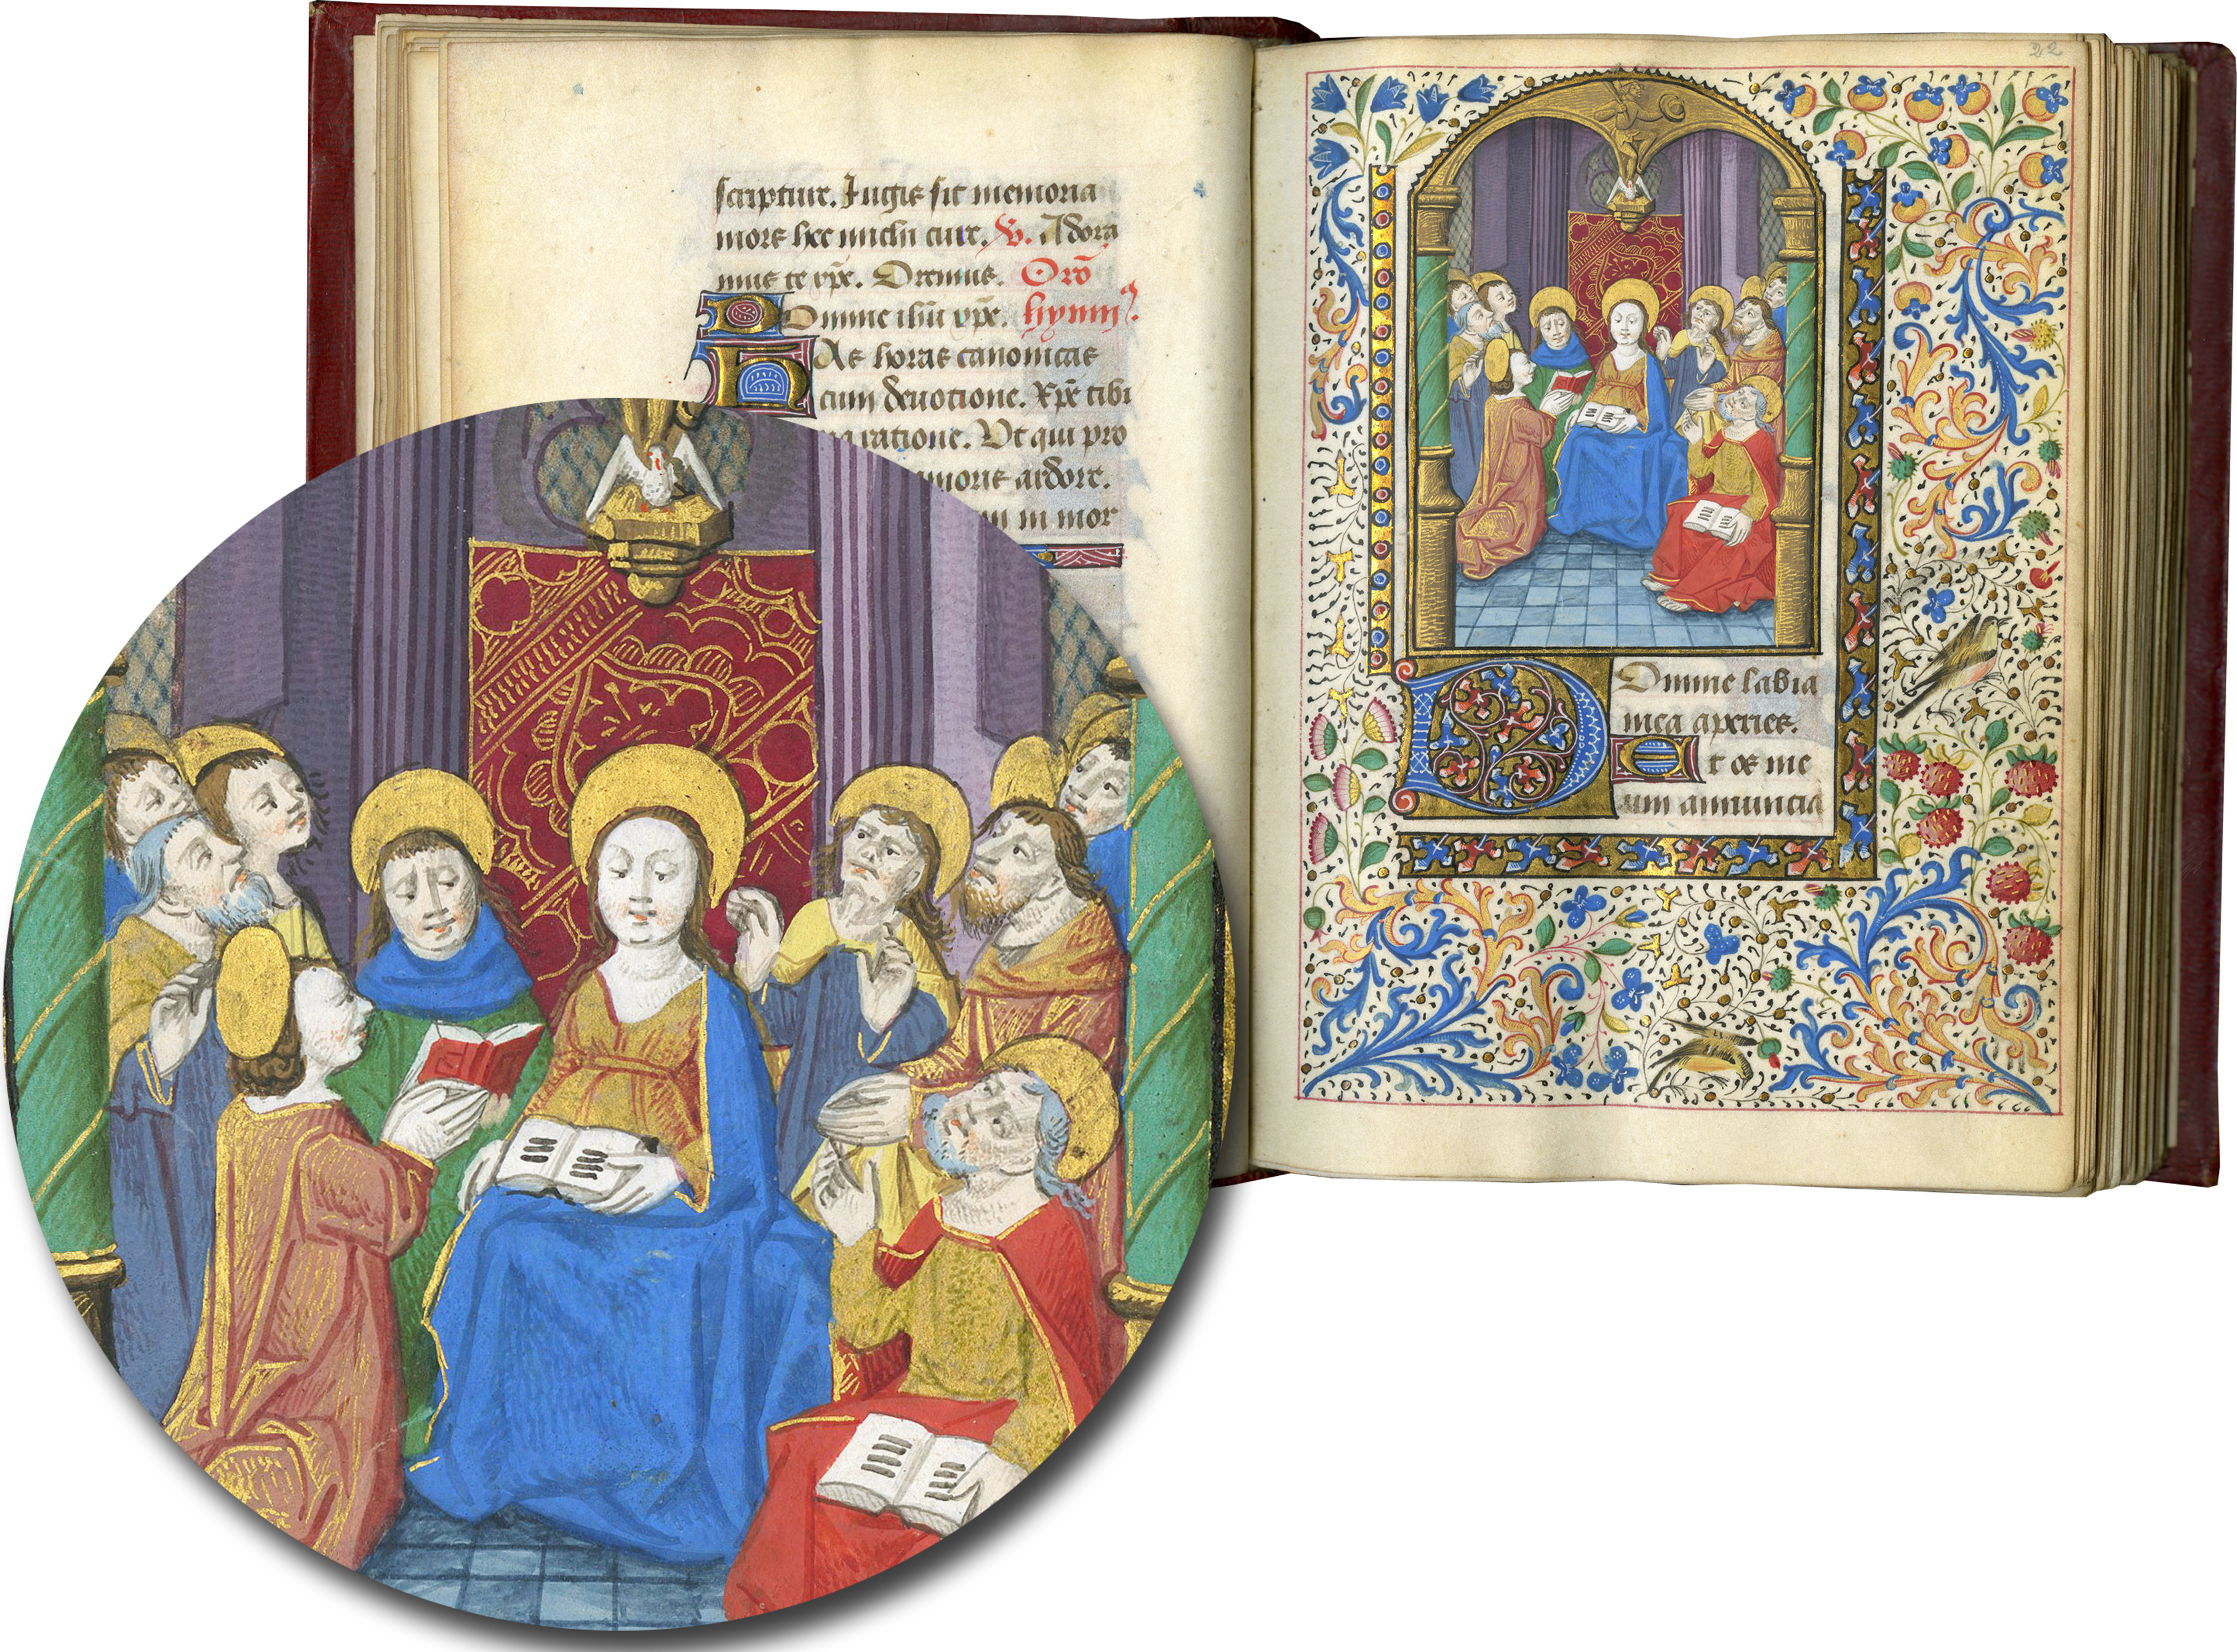 scripture. Iugis sit memoria
mors hec michi cure. V. Adora
mus te xpe. Oremus. Oro
Domine ihu xpe. hymn9.
Has horas canonicas
cum deuotione. Xpe tibi
ratione. Ut qui pro
amoris ardore.
in mor
22
Domine labia
mea aperies.
Et os me
um annuncia